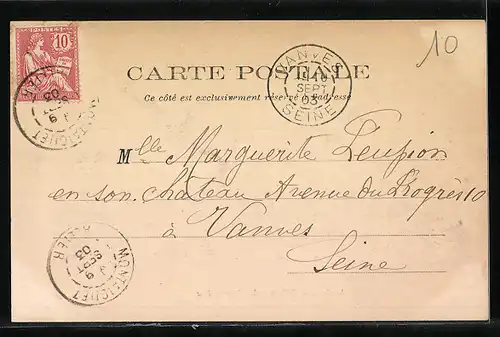 10
POSTES
10
CARTE POSTALE
Ce côté est exclusivement réservé à l'adresse
VANVES
SEPT
03
SEINE
Mlle Marguerite Leupion
en son château Avenue du Progrès 10
à Vanves
Seine
9
SEPT
03
MONTATCHET
9
SEPT
03